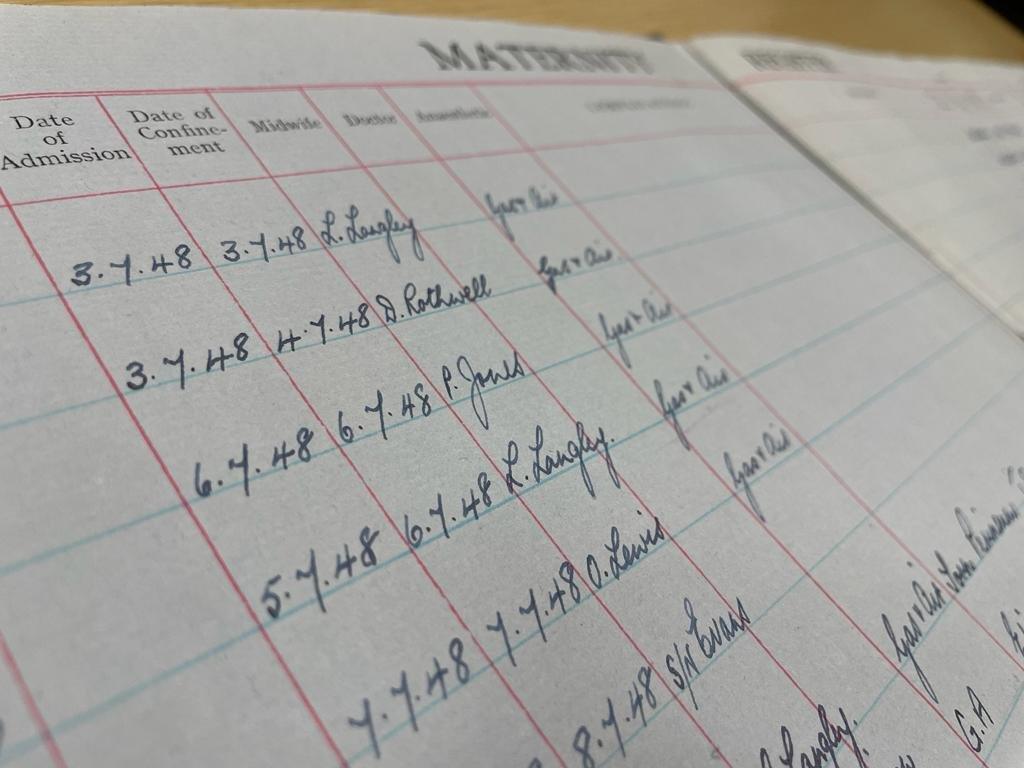 MATERNITY REGISTER
Date of Admission Date of Confine-ment Midwife Doctor Anaesthetic
3.7.48 3.7.48 L. Langley Gas & Air
3.7.48 4.7.48 D. Rothwell Gas & Air
6.7.48 6.7.48 P. Jones Gas & Air
5.7.48 6.7.48 L. Langley. Gas & Air
7.7.48 7.7.48 O. Lewis Gas & Air
8.7.48 S/N Evans Gas & Air
Langley. G.A